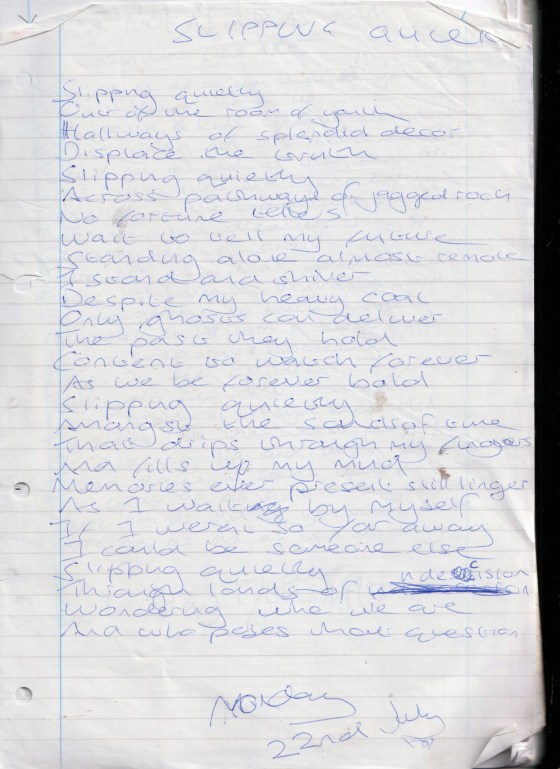 SLIPPING QUIE
Slipping quietly
Out of the room of youth
Hallways of splendid decor
Displace the truth
Slipping quietly
Across pathways of jagged rock
No fortune tellers
Wait to tell my future
Standing alone almost remote
I stand and shiver
Despite my heavy coat
Only ghosts can deliver
The past they hold
Content to watch forever
As we be forever bold
Slipping quietly
Amongst the sands of time
That drips through my fingers
And fills up my mind
Memories ever present still linger
As I walk by myself
If I weren't so far away
I could be someone else
Slipping quietly
Through lands of indecision
Wondering who we are
And who poses that question
Monday
22nd July